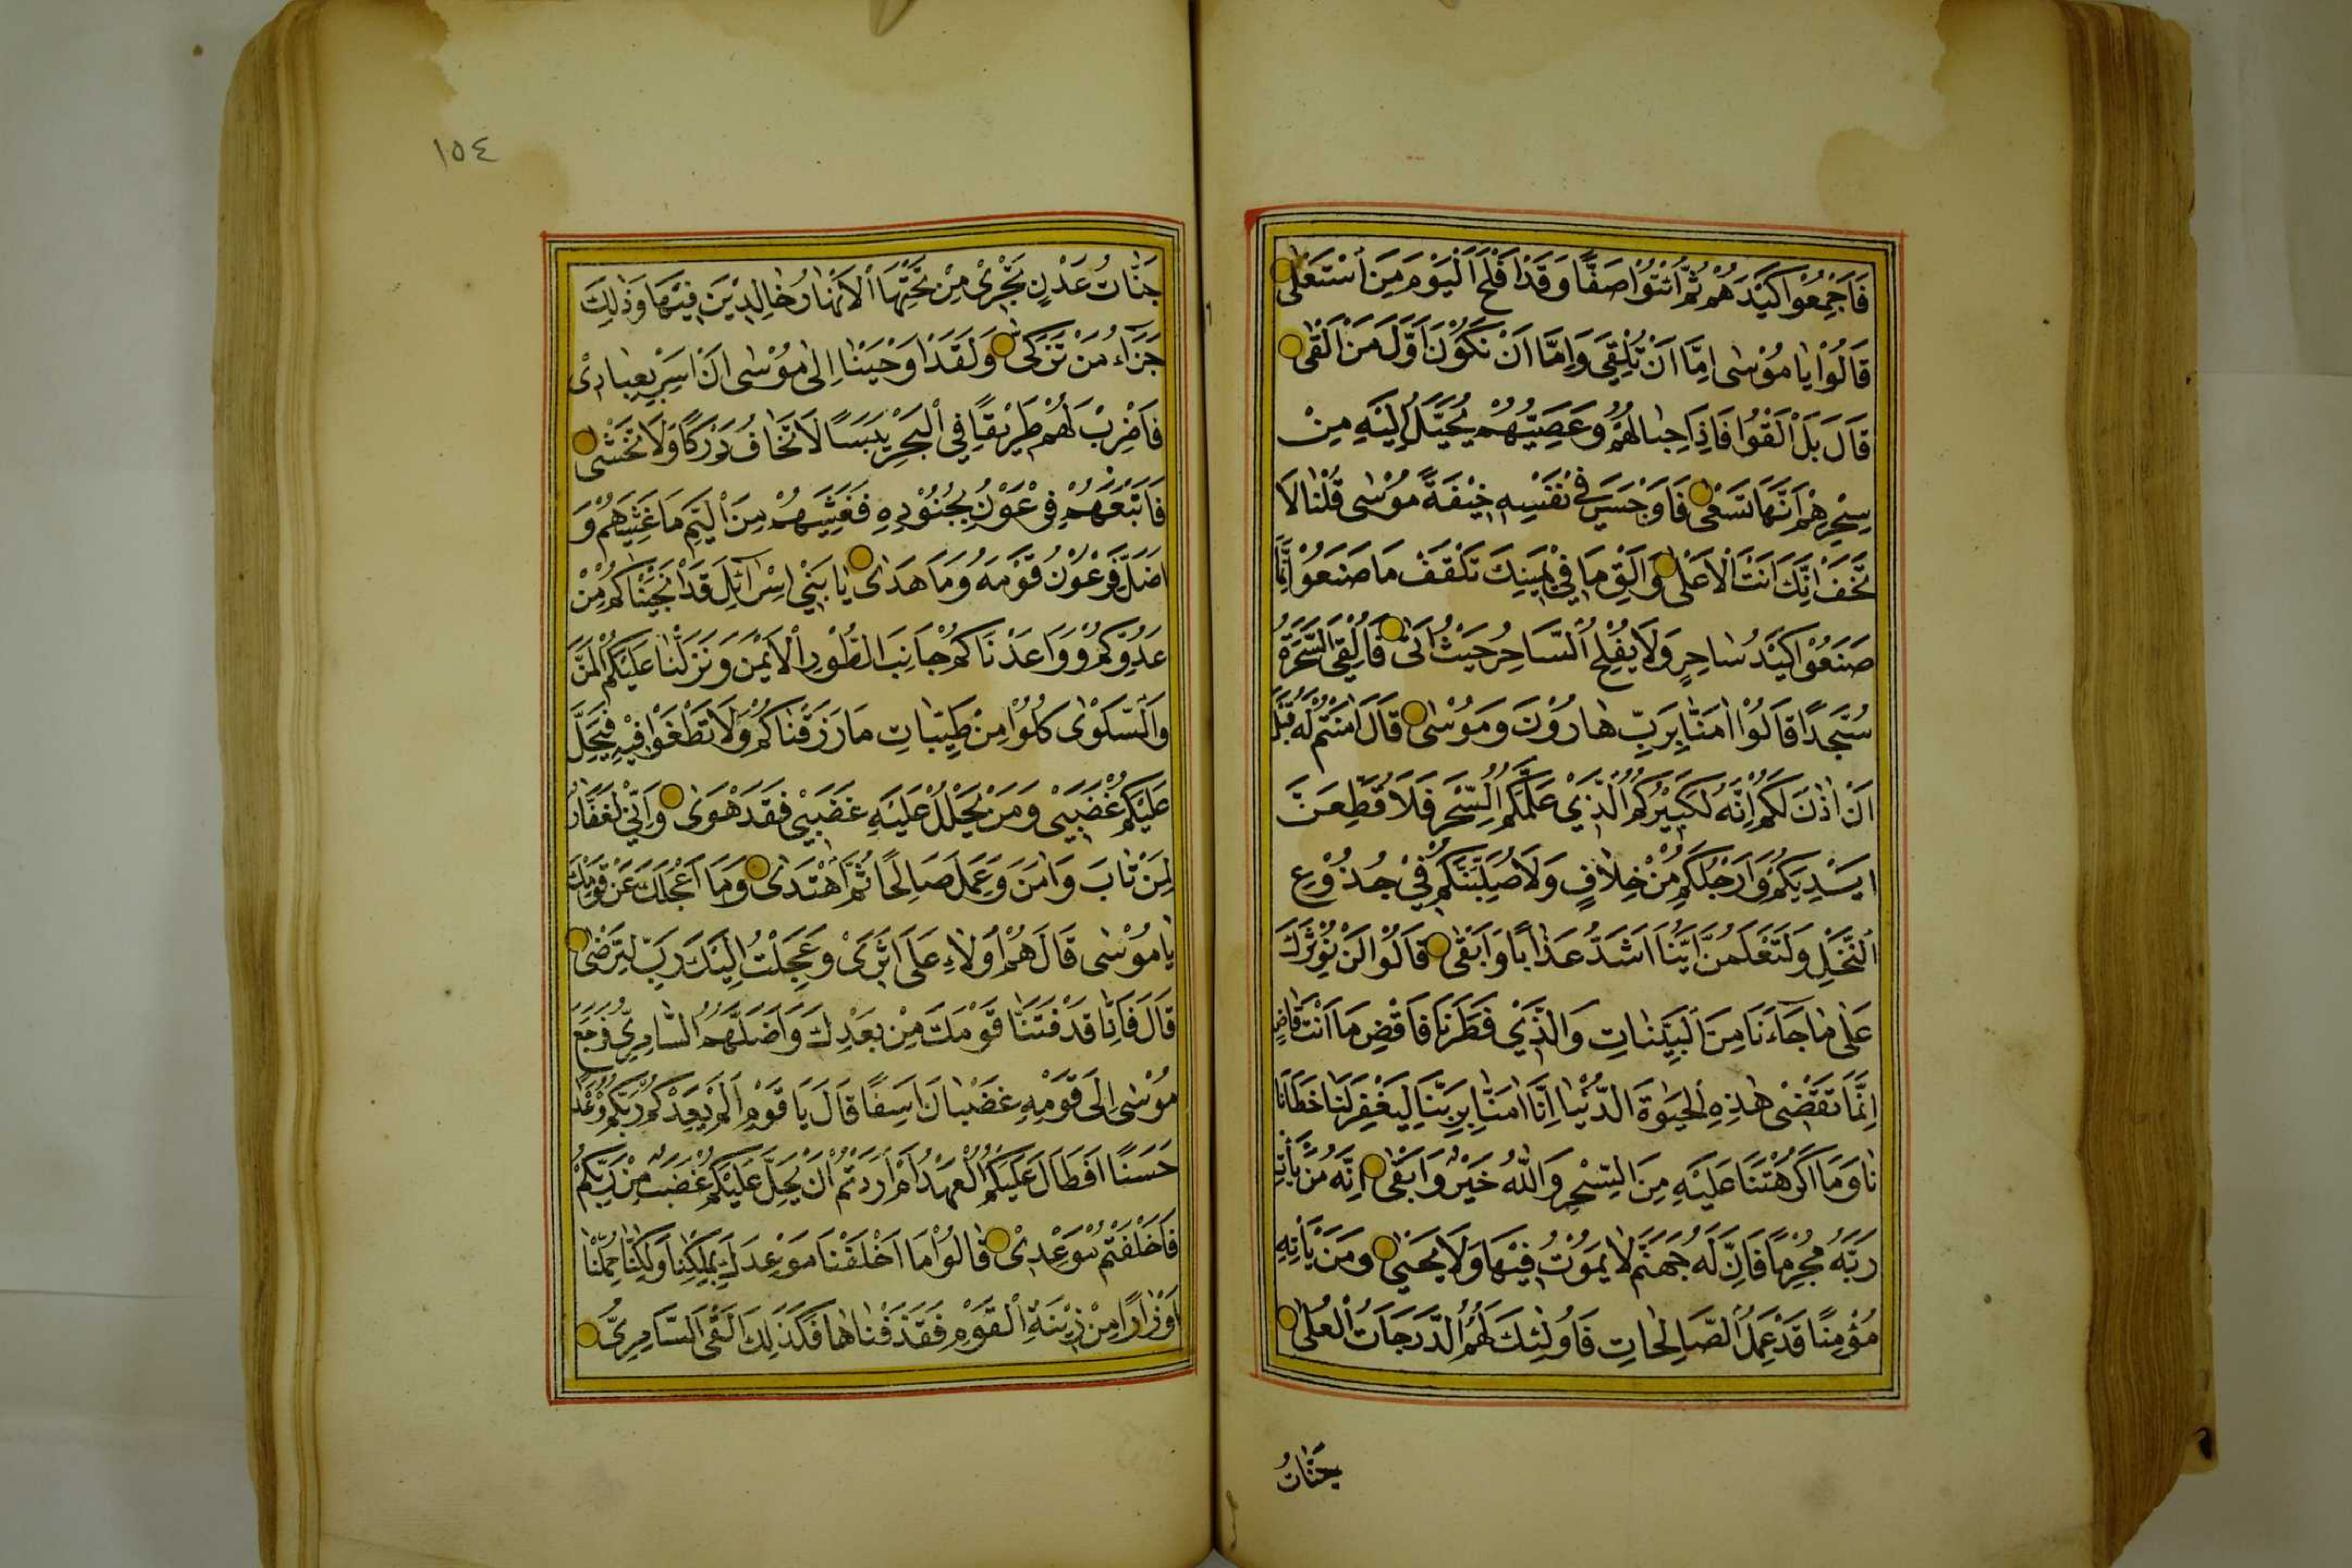 فَاَجْمِعُوا كَيْدَهُمْ ثُمَّ ائْتُوْا صَفًّا وَقَدْ اَفْلَحَ الْيَوْمَ مَنِ اسْتَعْلٰى
قَالُوْا يَا مُوْسٰى اِمَّا اَنْ تُلْقِيَ وَاِمَّا اَنْ نَكُوْنَ اَوَّلَ مَنْ اَلْقٰى
قَالَ بَلْ اَلْقُوْا فَاِذَا حِبَالُهُمْ وَعِصِيُّهُمْ يُخَيَّلُ اِلَيْهِ مِنْ
سِحْرِهِمْ اَنَّهَا تَسْعٰى فَاَوْجَسَ فِي نَفْسِهِ خِيْفَةً مُوْسٰى قُلْنَا لَا
تَخَفْ اِنَّكَ اَنْتَ الْاَعْلٰى وَاَلْقِ مَا فِيْ يَمِيْنِكَ تَلْقَفْ مَا صَنَعُوْا اِنَّمَا
صَنَعُوْا كَيْدُ سَاحِرٍ وَلَا يُفْلِحُ السَّاحِرُ حَيْثُ اَتٰى فَاُلْقِيَ السَّحَرَةُ
سُجَّدًا قَالُوْا اٰمَنَّا بِرَبِّ هَارُوْنَ وَمُوْسٰى قَالَ اٰمَنْتُمْ لَهُ قَبْلَ
اَنْ اٰذَنَ لَكُمْ اِنَّهُ لَكَبِيْرُكُمُ الَّذِيْ عَلَّمَكُمُ السِّحْرَ فَلَاُقَطِّعَنَّ
اَيْدِيَكُمْ وَاَرْجُلَكُمْ مِنْ خِلَافٍ وَلَاُصَلِّبَنَّكُمْ فِيْ جُذُوْعِ
النَّخْلِ وَلَتَعْلَمُنَّ اَيُّنَا اَشَدُّ عَذَابًا وَاَبْقٰى قَالُوْا لَنْ نُؤْثِرَكَ
عَلٰى مَا جَاءَنَا مِنَ الْبَيِّنَاتِ وَالَّذِيْ فَطَرَنَا فَاقْضِ مَا اَنْتَ قَاضٍ
اِنَّمَا تَقْضِيْ هٰذِهِ الْحَيٰوةَ الدُّنْيَا اِنَّا اٰمَنَّا بِرَبِّنَا لِيَغْفِرَ لَنَا خَطَايَا
نَا وَمَا اَكْرَهْتَنَا عَلَيْهِ مِنَ السِّحْرِ وَاللّٰهُ خَيْرٌ وَاَبْقٰى اِنَّهُ مَنْ يَأْتِ
رَبَّهُ مُجْرِمًا فَاِنَّ لَهُ جَهَنَّمَ لَا يَمُوْتُ فِيْهَا وَلَا يَحْيٰى وَمَنْ يَأْتِهِ
مُؤْمِنًا قَدْ عَمِلَ الصَّالِحَاتِ فَاُولٰئِكَ لَهُمُ الدَّرَجَاتُ الْعُلٰى
جَنَّاتُ
١٥٤
جَنَّاتُ عَدْنٍ تَجْرِيْ مِنْ تَحْتِهَا الْاَنْهَارُ خَالِدِيْنَ فِيْهَا وَذٰلِكَ
جَزَاءُ مَنْ تَزَكّٰى وَلَقَدْ اَوْحَيْنَا اِلٰى مُوْسٰى اَنْ اَسْرِ بِعِبَادِيْ
فَاضْرِبْ لَهُمْ طَرِيْقًا فِي الْبَحْرِ يَبَسًا لَا تَخَافُ دَرَكًا وَلَا تَخْشٰى
فَاَتْبَعَهُمْ فِرْعَوْنُ بِجُنُوْدِهِ فَغَشِيَهُمْ مِنَ الْيَمِّ مَا غَشِيَهُمْ وَ
اَضَلَّ فِرْعَوْنُ قَوْمَهُ وَمَا هَدٰى يَا بَنِيْ اِسْرَائِلَ قَدْ اَنْجَيْنَاكُمْ مِنْ
عَدُوِّكُمْ وَوَاعَدْنَاكُمْ جَانِبَ الطُّوْرِ الْاَيْمَنَ وَنَزَّلْنَا عَلَيْكُمُ الْمَنَّ
وَالسَّلْوٰى كُلُوْا مِنْ طَيِّبَاتِ مَا رَزَقْنَاكُمْ وَلَا تَطْغَوْا فِيْهِ فَيَحِلَّ
عَلَيْكُمْ غَضَبِيْ وَمَنْ يَحْلِلْ عَلَيْهِ غَضَبِيْ فَقَدْ هَوٰى وَاِنِّيْ لَغَفَّارٌ
لِمَنْ تَابَ وَاٰمَنَ وَعَمِلَ صَالِحًا ثُمَّ اهْتَدٰى وَمَا اَعْجَلَكَ عَنْ قَوْمِكَ
يَا مُوْسٰى قَالَ هُمْ اُولَاءِ عَلٰى اَثَرِيْ وَعَجِلْتُ اِلَيْكَ رَبِّ لِتَرْضٰى
قَالَ فَاِنَّا قَدْ فَتَنَّا قَوْمَكَ مِنْ بَعْدِكَ وَاَضَلَّهُمُ السَّامِرِيُّ فَرَجَعَ
مُوْسٰى اِلٰى قَوْمِهِ غَضْبَانَ اَسِفًا قَالَ يَا قَوْمِ اَلَمْ يَعِدْكُمْ رَبُّكُمْ وَعْدًا
حَسَنًا اَفَطَالَ عَلَيْكُمُ الْعَهْدُ اَمْ اَرَدْتُمْ اَنْ يَحِلَّ عَلَيْكُمْ غَضَبٌ مِنْ رَبِّكُمْ
فَاَخْلَفْتُمْ مَوْعِدِيْ قَالُوْا مَا اَخْلَفْنَا مَوْعِدَكَ بِمَلْكِنَا وَلٰكِنَّا حُمِّلْنَا
اَوْزَارًا مِنْ زِيْنَةِ الْقَوْمِ فَقَذَفْنَاهَا فَكَذٰلِكَ اَلْقَى السَّامِرِيُّ